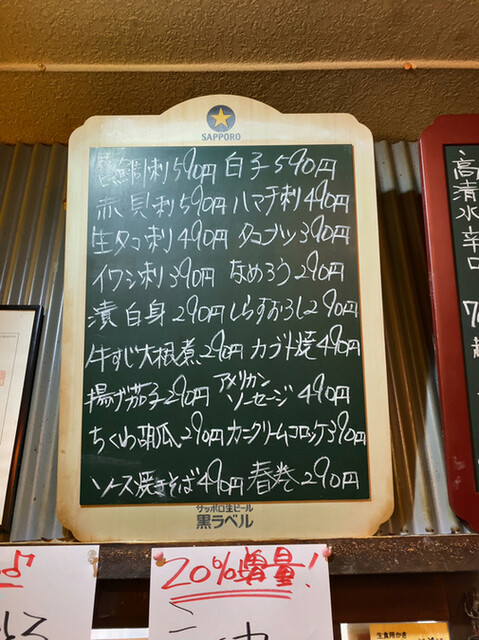 SAPPORO
鯛刺590円 白子590円
赤貝刺590円 ハマチ刺490円
生タコ刺490円 タコブツ390円
イワシ刺390円 なめろう290円
漬白身290円 しらすおろし290円
牛すじ大根煮290円 カブト焼490円
揚げ茄子290円 アメリカンソーセージ490円
ちくわ胡瓜290円 カニクリームコロッケ390円
ソース焼きそば490円 春巻290円
サッポロ生ビール
黒ラベル
高清水辛口
20%増量!
生食用かき